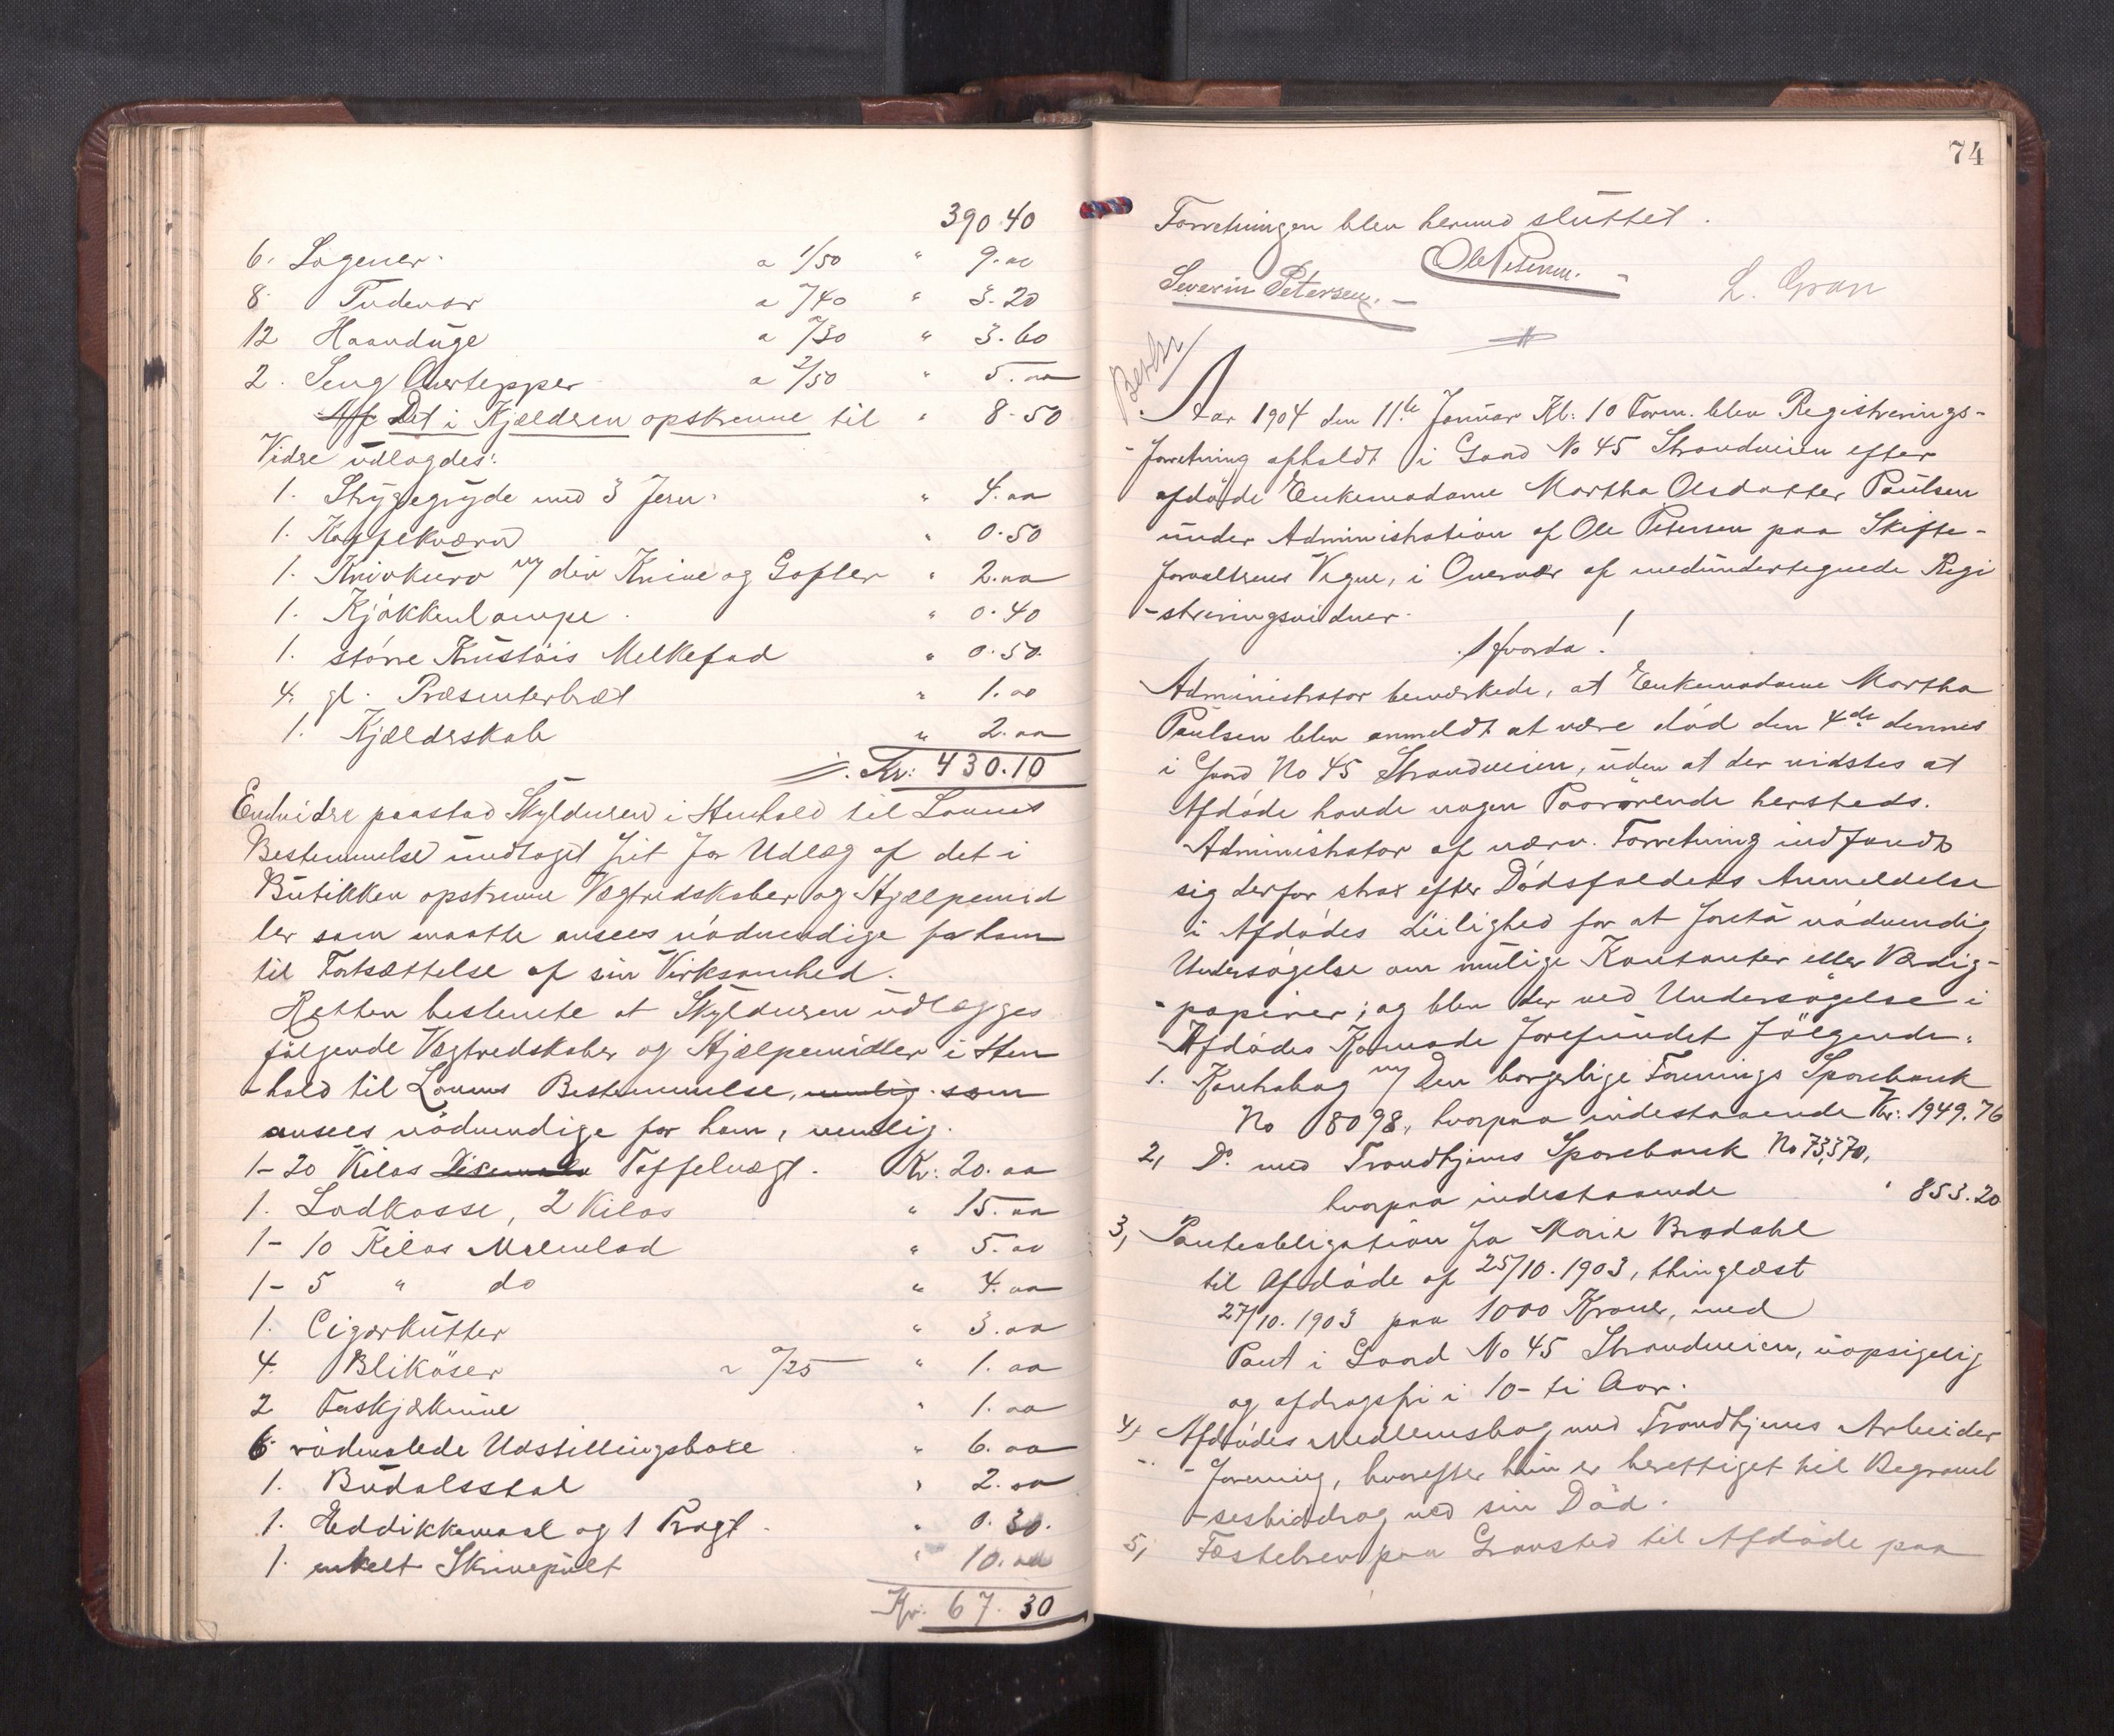 390.40
6. Lagener. a 1/50 " 9.00
8 Pudevar a "/40 " 3.20
12 Haandüge a "/30 " 3.60
2. Seng Overtepper a 2/50 " 5.00
Det i Kjælderen opskrevne til " 8.50
Vidre üdlagdes:
1. Strygegryde med 3 Jern. " 4.00
1. Kaffekværn " 0.50
1. Knivkurv m/ div Knive og Gafler " 2.00
1. Kjøkkenlampe. " 0.40
1. større Krustøis Melkefad " 0.50.
4. gl. Præsenterbræt " 1.00
1. Kjælderskab " 2.00
Kr: 430.10
Endvidre paastod Skyldneren i Henhold til Lovens
Bestemmelse undtaget frit for Udlæg af det i
Butikken opskrevne Vægtredskaber og Hjælpemid
ler som maatte ansees nödvendige for ham
til Fortsættelse af sin Virksomhed.
Retten bestemte at Skyldneren udlægges
følgende Vægtredskaber og Hjælpemidler i Hen
-hold til Lovens Bestemmelse, nemlig som
ansees nödvendige for ham, nemlig.
1- 20 Kilos Bismerlo Taffelvægt. Kr: 20.00
1. Lodkasse, 2 Kilos " 15.00
1- 10 Kilos Malmlod " 5.00
1- 5 " do " 4.00
1. Cigarkütter " 3.00
4. Blikøser a "/25 " 1.00
2 " 1.00
6 rödmalede Udstillingsboxe " 6.00
1. " 2.00
1. Eddikkemaal og 1 Tragt. " 0.30.
1. enkelt Skrivepült " 10.00
Kr. 67.30
74
Forretningen blev hermed slüttet.
Ole Petersen.
Severin Petersen. L. Gran
Aar 1904 den 11te Januar Kl: 10 Form. blev Registrerings-
-forretning afholdt i Gaard No 45 Strandveien efter
afdøde Enkemadame Martha Olsdatter Paülsen
under Administration af Ole Petersen paa Skifte-
forvalterens Vegne, i Overvær af medundertegnede Regi
-streringsvidner.
Hvorda!
Administrator bemærkede, at Enkemadame Martha
Paülsen blev anmeldt at være död den 4de dennes
i Gaard No 45 Strandveien, üden at der vidstes at
Afdöde havde nogen Paarørende hersteds.
Administrator af nærv. Forretning indfandt
sig derfor strax efter Dödsfaldets Anmeldelse
i Afdödes Leilighed for at foretå nödvendig
Undersögelse om mülige Kontanter eller Værdig-
-papirer; og blev der ved Undersögelse i
Afdödes Komode forefundet fölgende:
1. Kontrabog m/ Den borgerlige Forenings Sparebank
No 8098, hvorpaa indestaaende Kr: 1949.76
2, Do. med Trondhjems Sparebank No 73,370,
hvorpaa indestaaende " 853.20
3, Panteobligation fra Marie Brodahl
til Afdöde af 25/10.1903, thinglæst
27/10.1903 paa 1000 Kroner, med
Pant i Gaard No 45 Strandveien, uopsigelig
og afdragsfri i 10- ti Aar.
4, Afdödes Medlemsbog med Trondhjems Arbeider
-forening, hvorefter hün er berettiget til Begravel
-sesbidrag ved sin Död.
5, Fæstebrev paa Gravsted til Afdöde paa